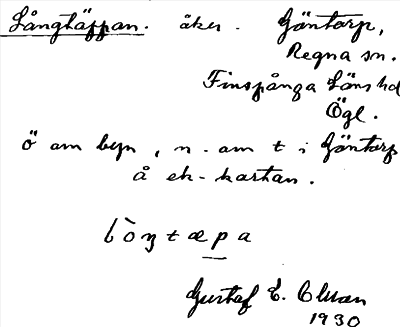 Långtäppan. åker. Göntorp,
Regna sn.
Finspånga Läns hd
Ögl.
Ö om byn, n. om t i Göntorp
å ek-kartan.
lòŋtæpa
Gustaf E. Olsson
1930